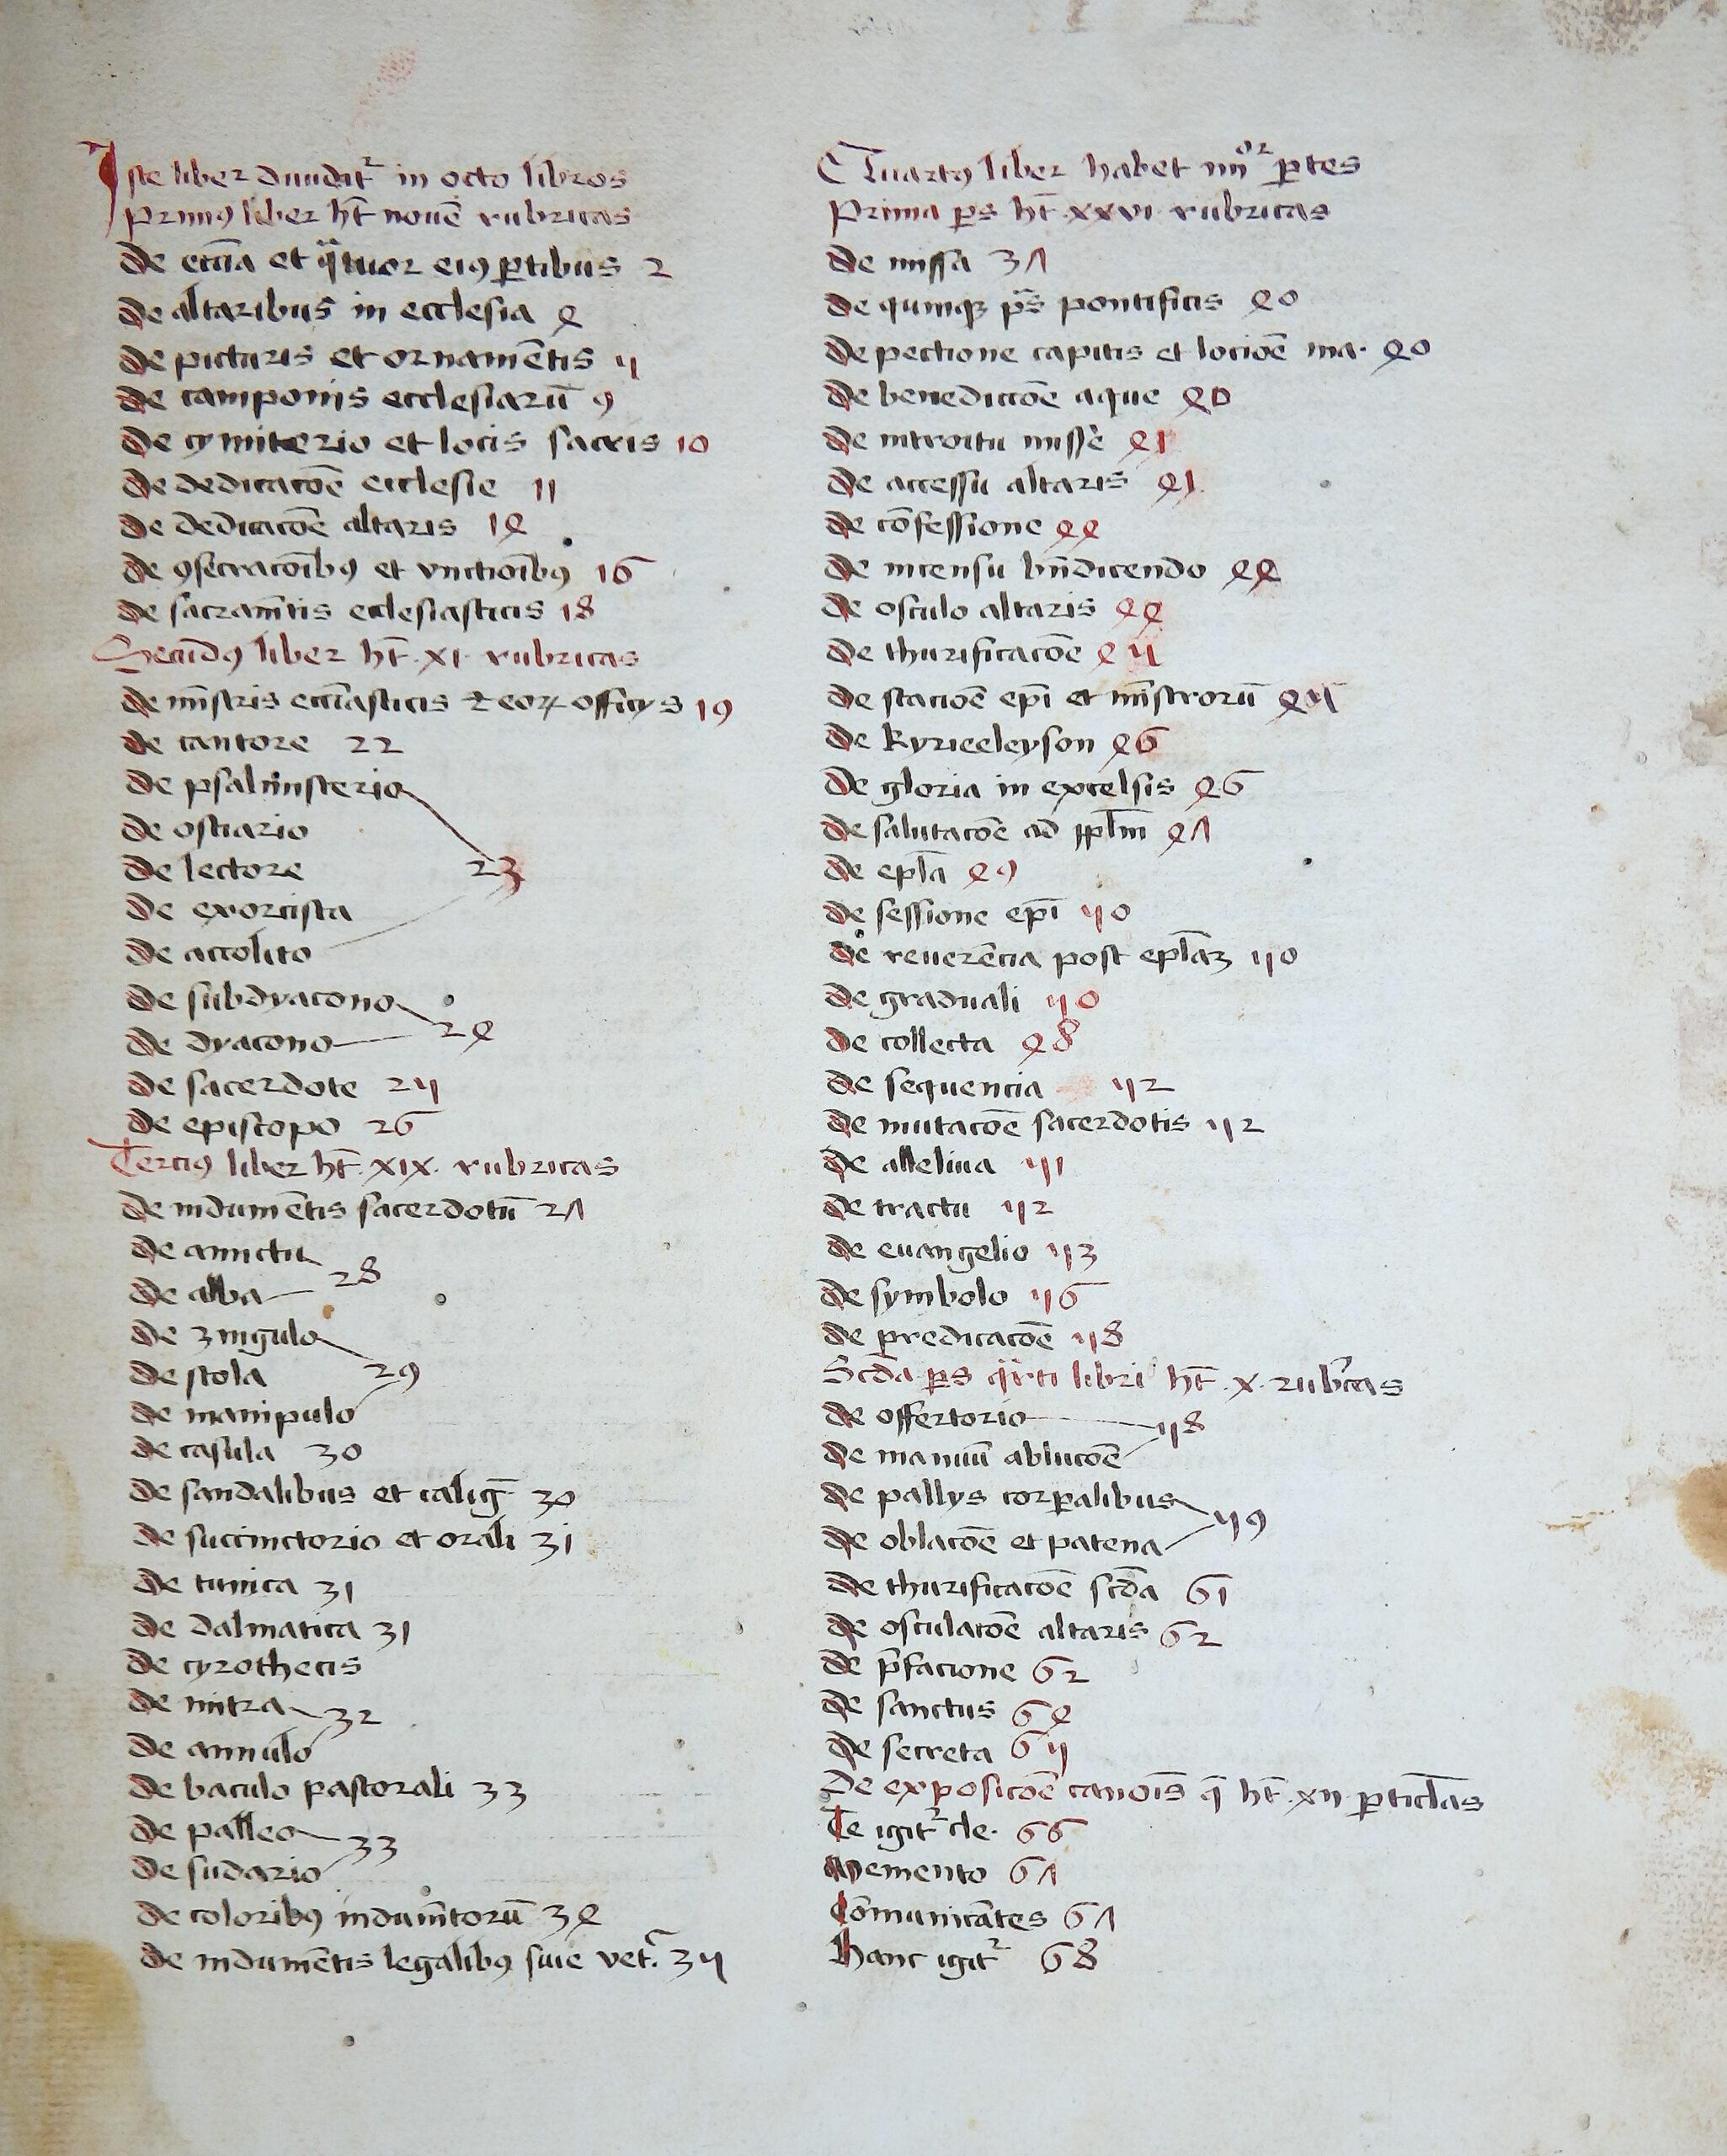 Iste liber diuidit᷑ in octo libros
Primꝯ liber ht̄ nouē rubricas
de ecc̄ia et qͣtuor eiꝯ ꝑtibus 2
de altaribus in ecclesia 4
de picturis et ornamētis 5
de camponis ecclesiarū 9
de cymiterio et locis sacris 10
de dedicacōe ecclesie 11
de dedicacōe altaris 14
de ꝯsecracōibꝯ et vnctiōibꝯ 16
de sacram̄tis ecclesiasticis 18
Secūdꝯ liber ht̄ .xi. rubricas
de mīstris ecc̄iasticis ⁊ eoꝝ officijs 19
de cantore 22
de psalmisterio
de ostiario
de lectore 23
de exorcista
de accolito
de subdyacono
de dyacono 24
de sacerdote 25
de episcopo 26
Tercꝯ liber ht̄ .xix. rubricas
de indumētis sacerdotū 27
de amictu
de alba 28
de zingulo
de stola 29
de manipulo
de casula 30
de sandalibus et calig̅ 30
de succinctorio et orali 31
de tunica 31
de dalmatica 31
de cyrothecis
de mitra 32
de annulo
de baculo pastorali 33
de palleo 33
de sudario
de coloribꝯ indum̄torū 34
de indumētis legalibꝯ siue vet᷑. 35
Quartꝯ liber habet iiiiᵒʳ ꝑtes
Prima ꝑs ht̄ .xxvi. rubricas
de missa 37
de quinqꝫ p̄s pontificis 40
de pectione capitis et locioē ma. 40
de benediccōe aque 40
de introitu misse 41
de accessu altaris 41
de cōfessione 44
de incensu bn̄dicendo 44
de osculo altaris 44
de thurificacōe 45
de stacioē ep̄i et mīstrorū 47
de kyrieeleyson 46
de gloria in excelsis 46
de salutacōe ad ppl̄m 47
de epl̄a 49
de sessione ep̄i 50
de reuerēcia post epl̄aꝫ 50
de graduali 50
de collecta 48
de sequencia 52
de mutacōe sacerdotis 52
de alleluia 51
de tractu 52
de euangelio 53
de symbolo 56
de predicacōe 58
Scd̄a ꝑs qͣrti libri ht̄ .x. rubͥcas
de offertorio 58
de manuū ablucōe
de pallijs corꝑalibus 59
de oblacōe et patena
de thurificacōe scd̄a 61
de osculacōe altaris 62
de p̄facione 62
de sanctus 64
de secreta 65
De exposicōe canōis q̄ ht̄ .xii. ꝑticl̄as
Te igit᷑ cle. 66
Memento 67
Cōmunicātes 67
Hanc igit᷑ 68